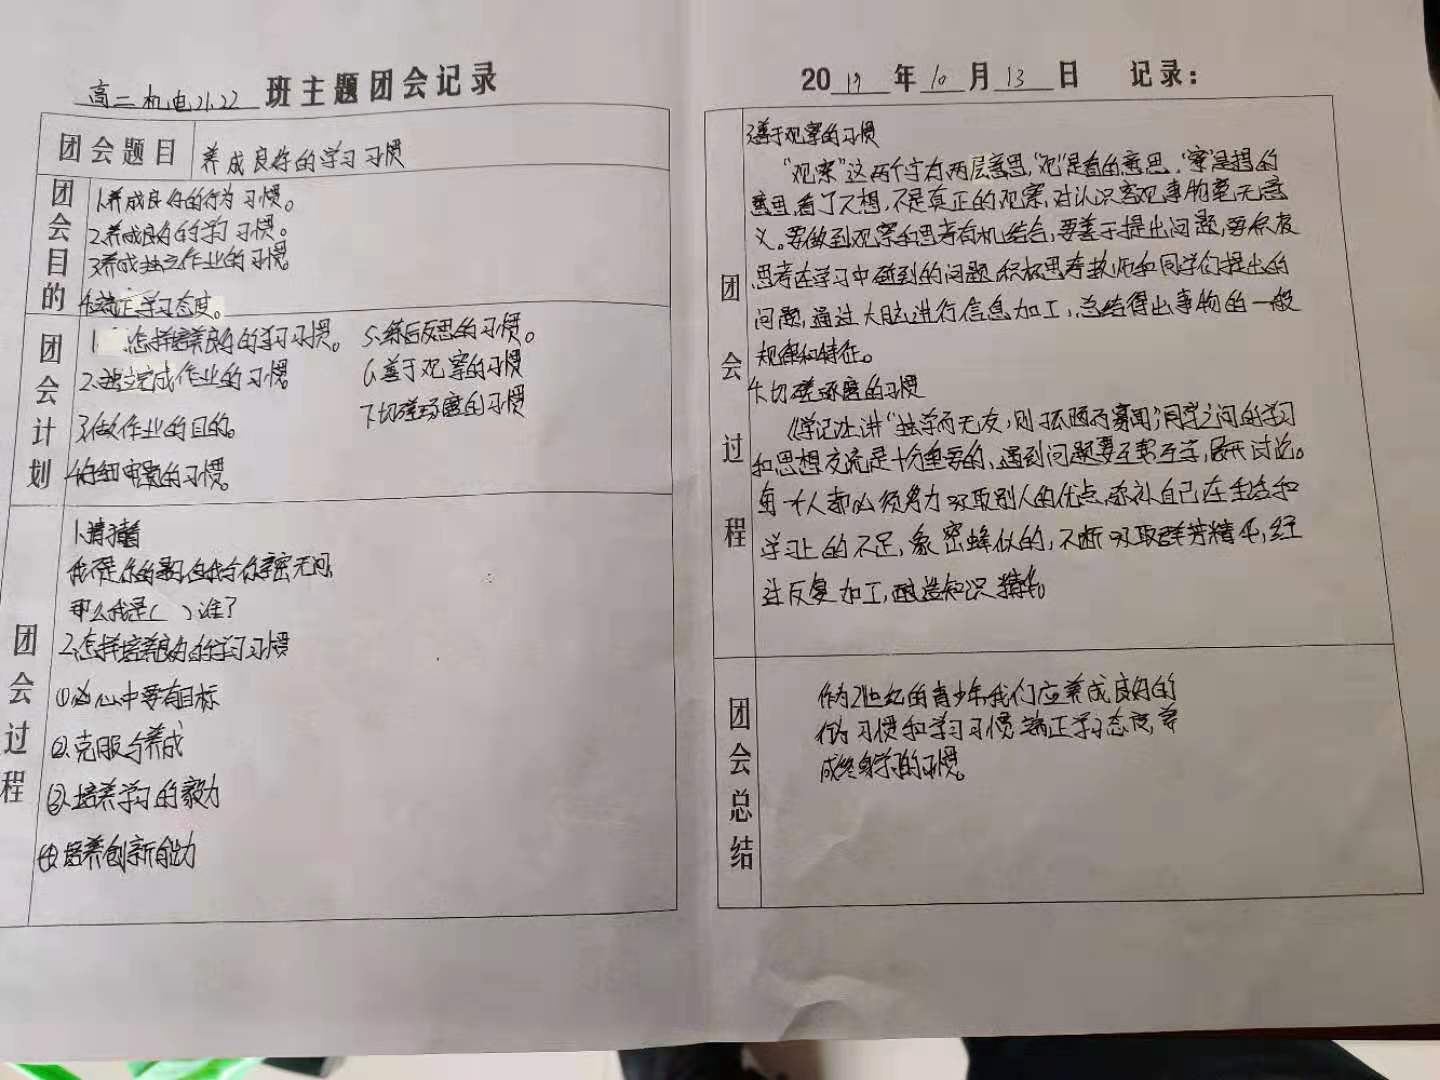 高二机电21.22班主题团会记录
团会题目 养成良好的学习习惯
团会目的
1.养成良好的行为习惯。
2.养成良好的学习习惯。
3.养成独立作业的习惯
4.端正学习态度。
团会计划
1.怎样培养良好的学习习惯。
2.独立完成作业的习惯
3.做作业的目的。
4.仔细审题的习惯。
5.练后反思的习惯。
6.善于观察的习惯
7.切磋琢磨的习惯
团会过程
1.请猜猜
我不是你的影子,但我与你亲密无间,
那么我是( )谁了
2.怎样培养良好的学习习惯
①心中要有目标
②克服与养成
③培养学习的毅力
④培养创新能力
2019年10月13日 记录:
团会过程
3.善于观察的习惯
“观察”这两个字有两层意思,“观”是看的意思,“察”是想的
意思,看了不想,不是真正的观察,对认识客观事物毫无意
义。要做到观察和思考有机结合,要善于提出问题,要积极
思考在学习中碰到的问题,积极思考教师和同学们提出的
问题,通过大脑进行信息加工,总结得出事物的一般
规律和特征。
4.切磋琢磨的习惯
《学记》上讲“独学而无友,则孤陋而寡闻”,同学之间的学习
和思想交流是十分重要的,遇到问题要互帮互学,展开讨论。
每一个人都必须努力吸取别人的优点,弥补自己在生活和
学习上的不足,象蜜蜂似的,不断吸取群芳精华,经
过反复加工,酿造知识精华。
团会总结
作为21世纪的青少年,我们应养成良好的
行为习惯和学习习惯,端正学习态度,养
成终身学习的习惯。